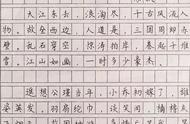 大江东去,浪淘尽,千古风流人
物。故垒西边,人道是:三国周郎赤
壁。乱石穿空,惊涛拍岸,卷起千堆
雪。江山如画,一时多少豪杰。
遥想公瑾当年,小乔初嫁了,雄
姿英发。羽扇纶巾,谈笑间,樯橹
故国神游,多情应